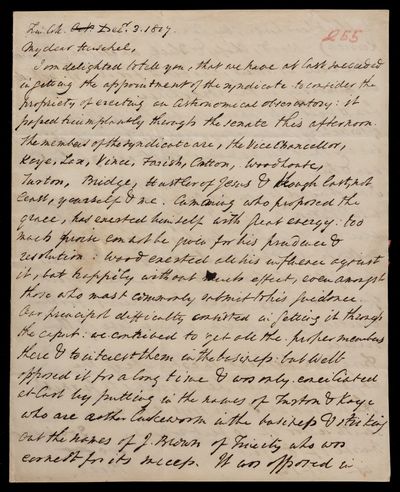 Trin. Coll. Decr. 3. 1817.
255
My dear Herschel,
I am delighted to tell you, that we have at last succeeded
in getting the appointment of the syndicate to consider the
propriety of erecting an Astronomical observatory: it
passed triumphantly through the senate this afternoon.
The members of the syndicate are, the Vice Chancellor,
Kaye, Lax, Vince, Farish, Catton, Woodhouse,
Turton, Bridge, French of Jesus & though last, not
least, yourself & me. Cumming who proposed the
grace, has exerted himself with great energy: too
much praise can not be given for his prudence &
resolution: Wood exerted all his influence against
it, but happily without much effect, even amongst
those who most commonly submit to his guidance.
Our principal difficulty consisted in getting it through
the caput: we contrived to get all the proper members
there & to interest them in the business: but Webb
opposed it for a long time & was only conciliated
at last by putting in the names of Turton & Kaye
who are rather lukewarm in the business & striking
out the names of J. Brown of Trinity who was
earnest for its success. It was opposed in